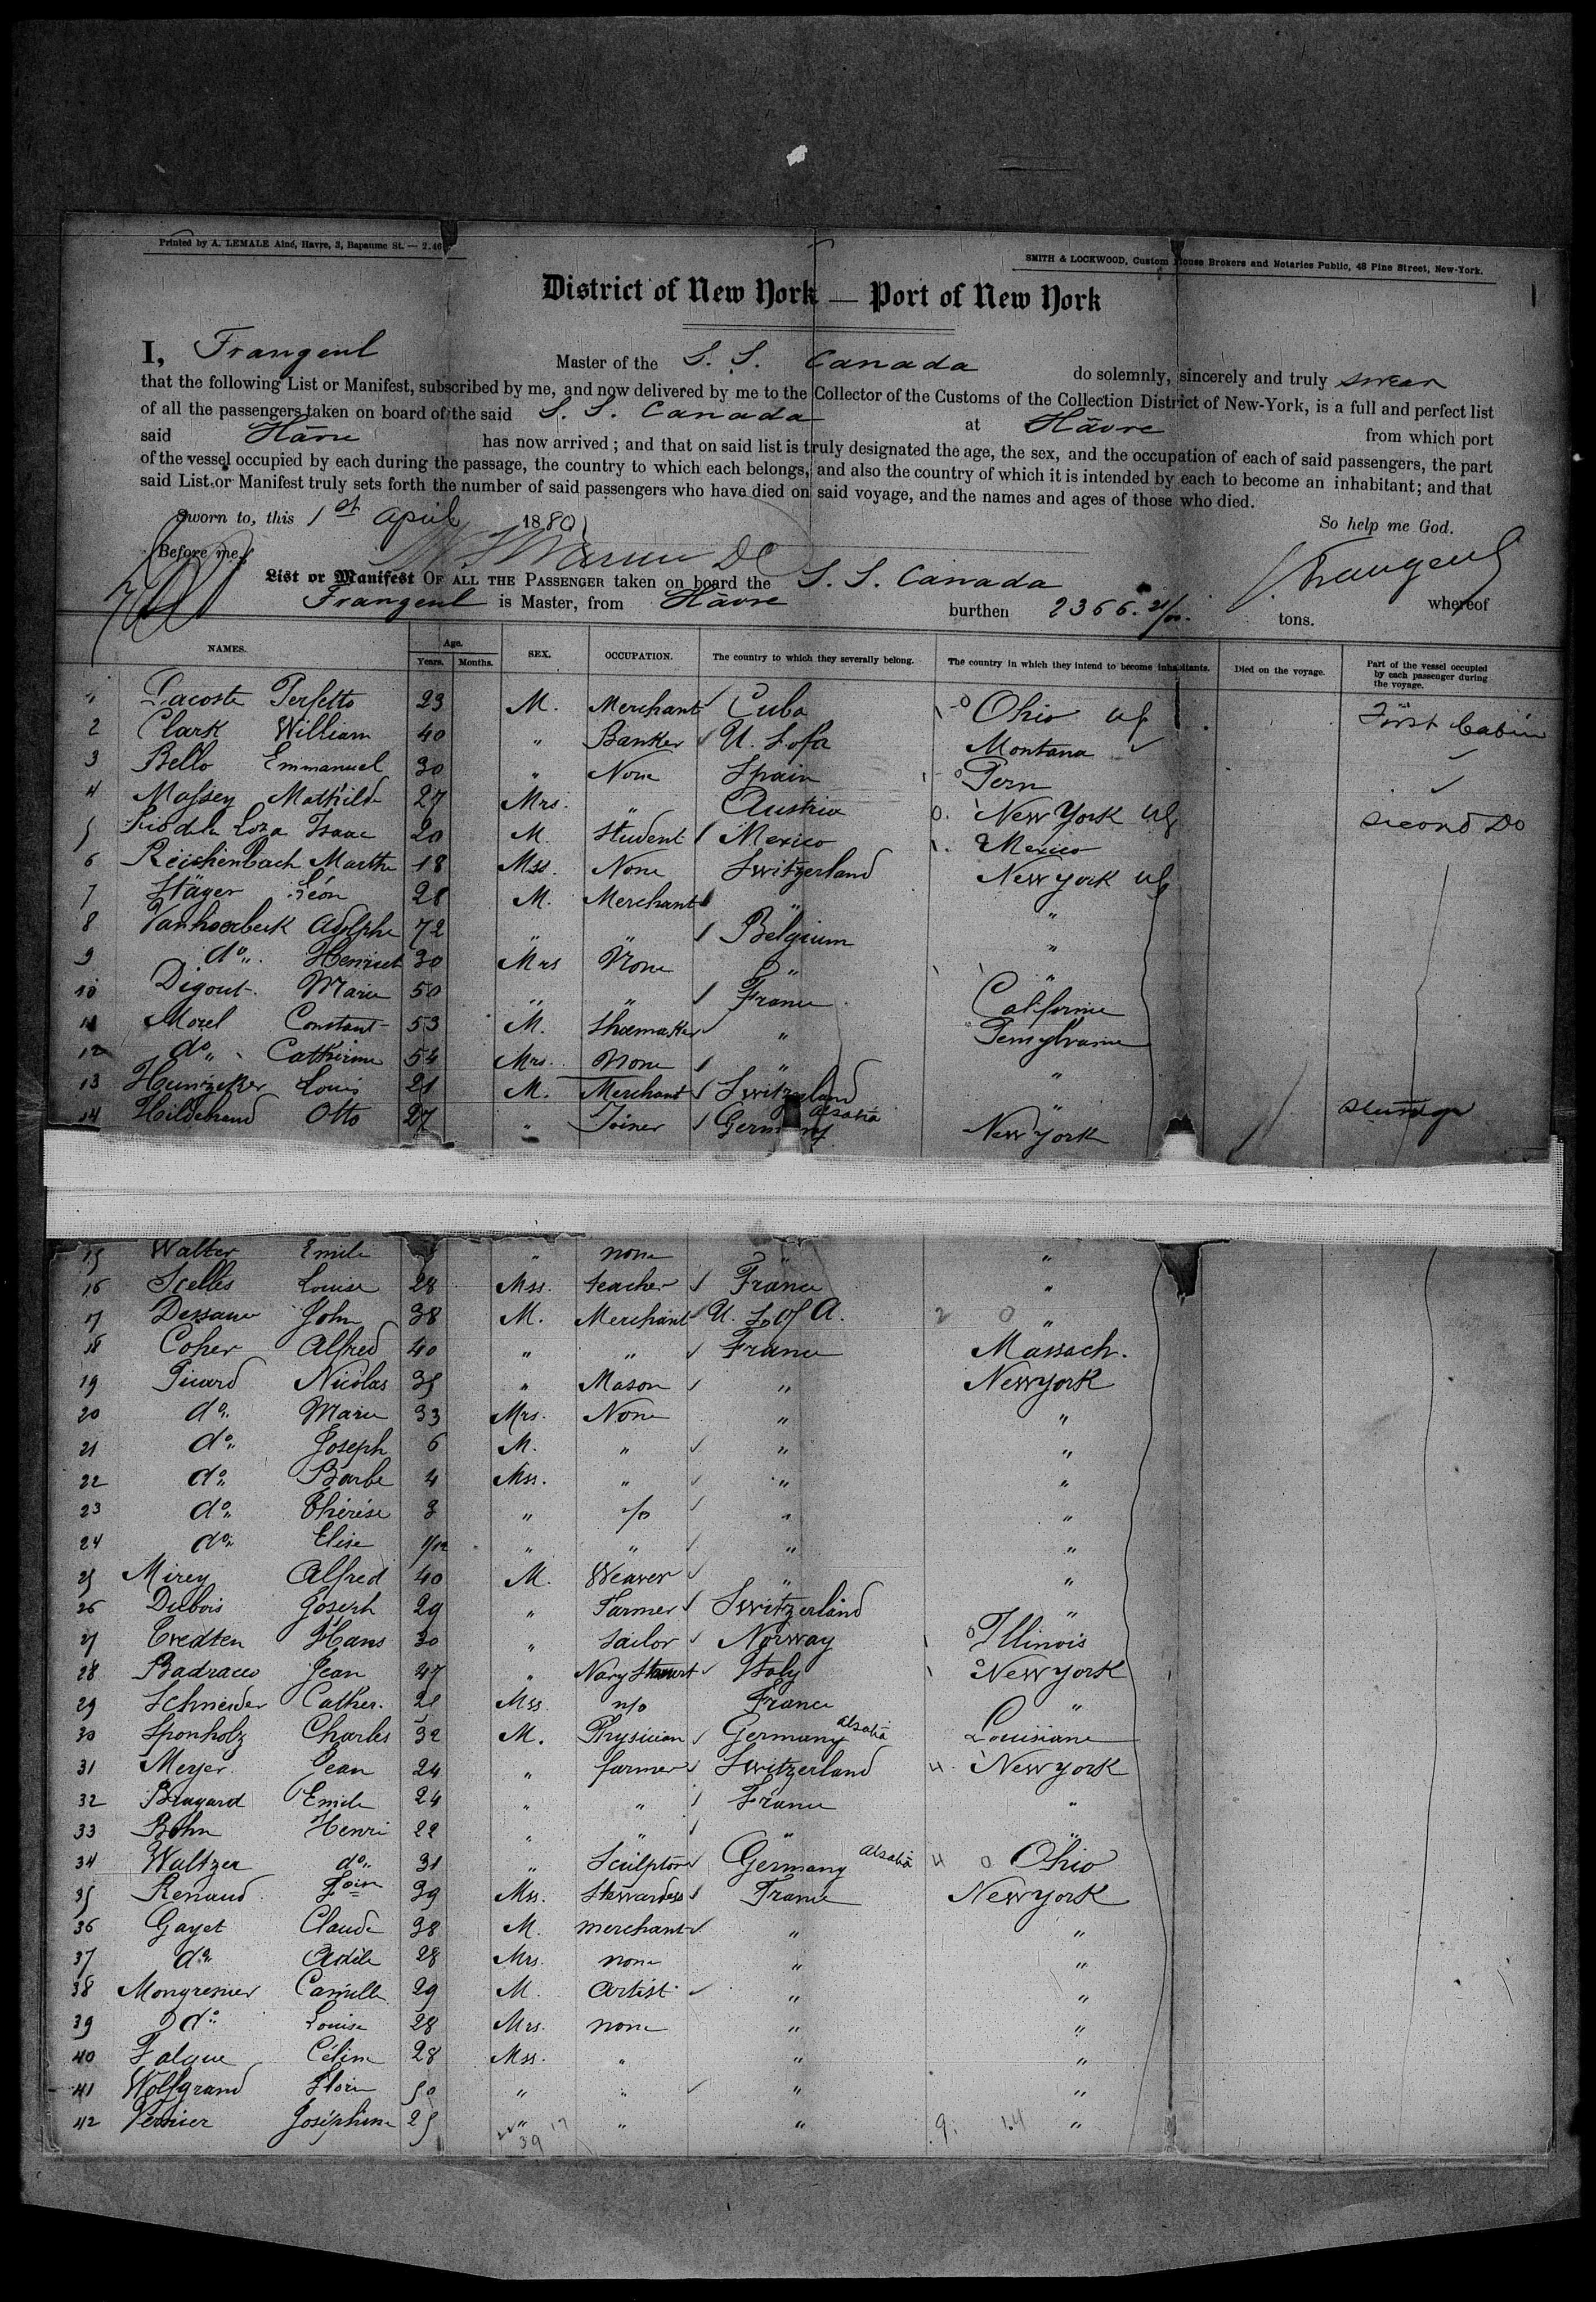 Printed by A. LEMALE Aîné, Havre, 3, Bapaume St. — 2.46
SMITH & LOCKWOOD, Custom House Brokers and Notaries Public, 48 Pine Street, New-York.
District of New York — Port of New York
I, Frangeul Master of the S. S. Canada do solemnly, sincerely and truly swear
that the following List or Manifest, subscribed by me, and now delivered by me to the Collector of the Customs of the Collection District of New-York, is a full and perfect list
of all the passengers taken on board of the said S. S. Canada at Hâvre from which port
said Hâvre has now arrived; and that on said list is truly designated the age, the sex, and the occupation of each of said passengers, the part
of the vessel occupied by each during the passage, the country to which each belongs, and also the country of which it is intended by each to become an inhabitant; and that
said List or Manifest truly sets forth the number of said passengers who have died on said voyage, and the names and ages of those who died.
Sworn to, this 1st April 1880 So help me God.
Before me, Frangeul
List or Manifest OF ALL THE PASSENGER taken on board the S. S. Canada whereof
Frangeul is Master, from Hâvre burthen 2366. tons.
NAMES. Age. Years. Months. SEX. OCCUPATION. The country to which they severally belong. The country in which they intend to become inhabitants. Died on the voyage. Part of the vessel occupied by each passenger during the voyage.
1 Lacoste Perfetto 23 M. Merchant Cuba Ohio First Cabin
2 Clark William 40 " Banker U. S. of a Montana
3 Bello Emmanuel 30 " None Spain
4 Massey Mathilde 27 Mrs. " Austria New York second Do
5 Rio de la Loza Isaac 20 M. Student Mexico Mexico
6 Reichenbach Marthe 18 Mss. None Switzerland New York
7 Stäger Léon 28 M. Merchant " "
8 Vanhoerbeck Adolphe 72 " " Belgium "
9 do Henriet 30 Mrs None " "
10 Digout Marie 50 " " France Californie
11 Morel Constant 53 M. Shoemaker " Pensylvanie
12 do Catherine 54 Mrs. None " "
13 Hunizeker Louis 21 M. Merchant Switzerland "
14 Hildebrand Otto 27 " Joiner Germany alsatia New York steerage
15 Walter Emile " none "
16 Scelles Louise 28 Mss. teacher France "
17 Dessaue John 38 M. Merchant U. S. of A. 2 0 "
18 Coher Alfred 40 " " France Massach.
19 Picard Nicolas 35 " Mason " New york
20 do Marie 33 Mrs. None " "
21 do Joseph 6 M. " " "
22 do Barbe 4 Mss. " " "
23 do Thérèse 3 " " "
24 do Elise 1/12 " " " "
25 Mirey Alfred 40 M. Weaver " "
26 Dubois Joseph 29 " Farmer Switzerland "
27 Credten Hans 30 " Sailor Norway Illinois
28 Badracco Jean 47 " Italy New york
29 Schneider Cather. 21 Mss. n/o France "
30 Sponholz Charles 32 M. Physician Germany alsatia Louisiane
31 Meyer Jean 24 " farmer Switzerland New york
32 Brayard Emile 24 " " France "
33 Bohn Henri 22 " " " "
34 Waltzer do 31 " Sculptor Germany alsatia Ohio
35 Renaud 39 Mss. Stewardess France New york
36 Gayet Claude 38 M. merchant " "
37 do Adèle 28 Mrs. none " "
38 Mongrenier Camille 29 M. Artist " "
39 do Louise 28 Mrs. none " "
40 Falque Céline 28 Mss. " " "
41 Wolfgrand Florin 50 " " " "
42 Vernier Joséphine 25 " " " "
39 17 9. 64